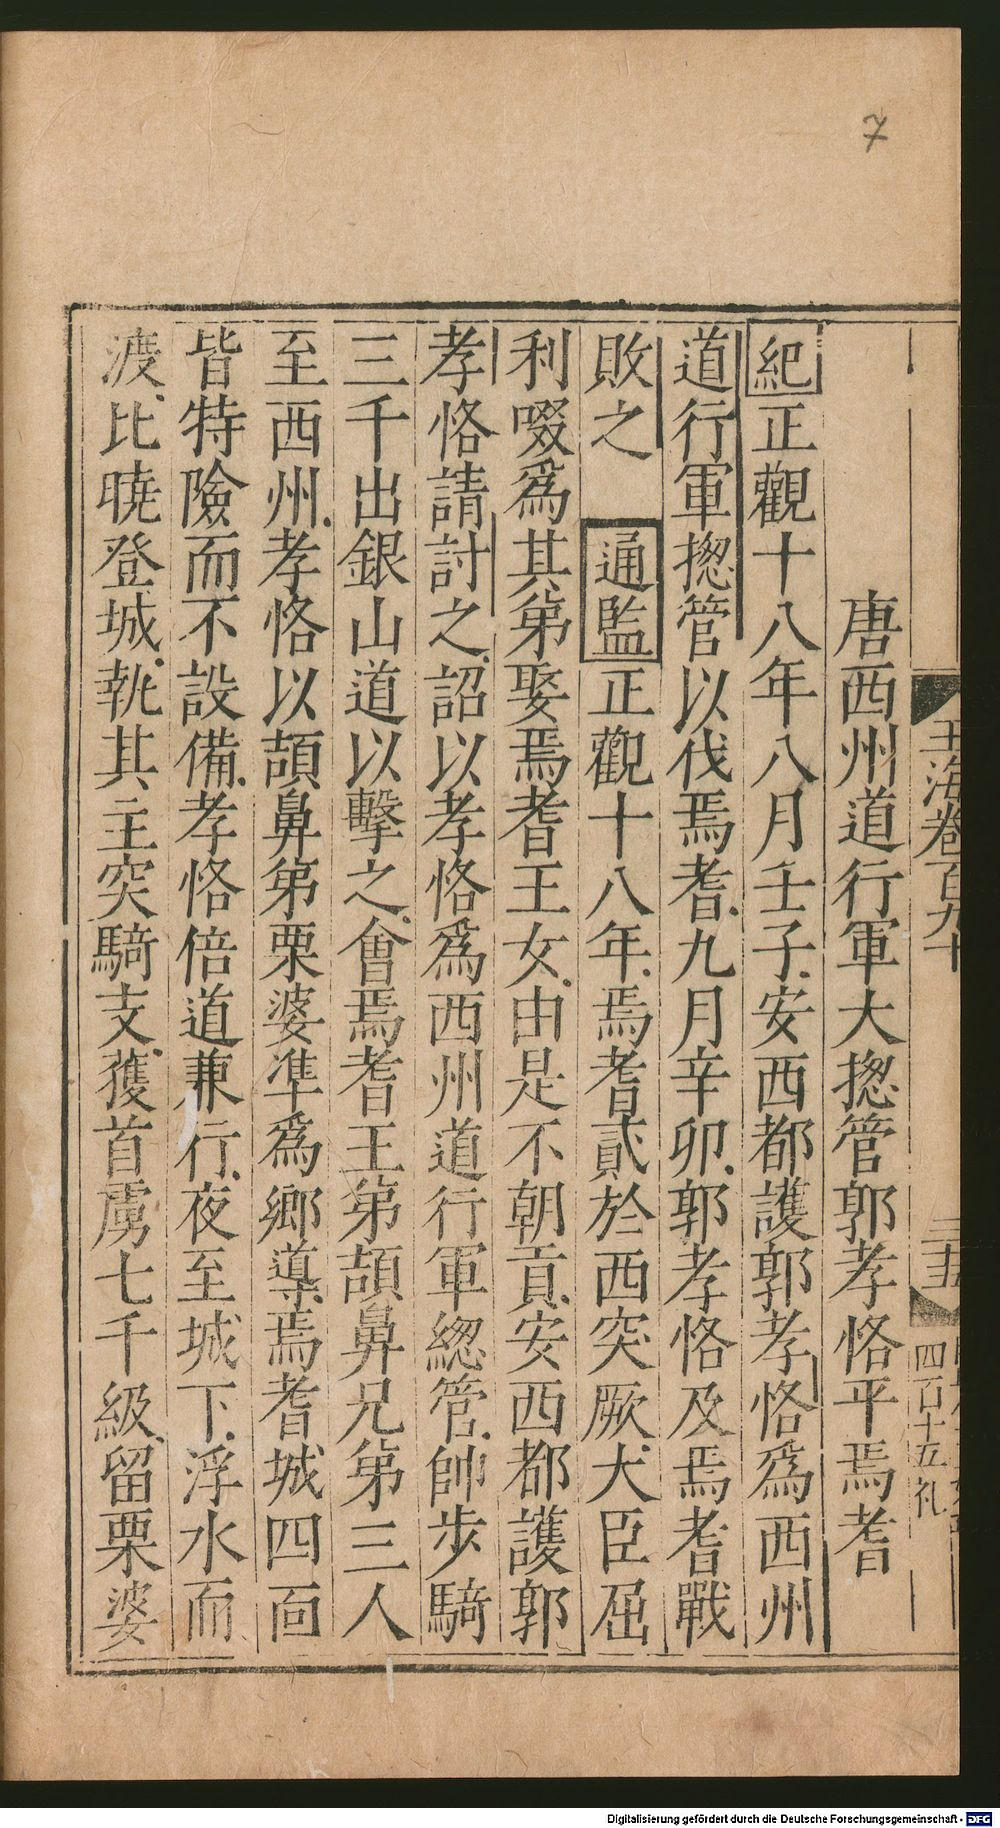 7
玉海卷百九十
四百十五礼
唐西州道行軍大揔管郭孝恪平焉耆
紀正觀十八年八月壬子安西都護郭孝恪爲西州
道行軍揔管以伐焉耆九月辛卯郭孝恪及焉耆戰
敗之 通監正觀十八年焉耆貳於西突厥大臣屈
利啜爲其弟娶焉耆王女由是不朝貢安西都護郭
孝恪請討之詔以孝恪爲西州道行軍緫管帥步騎
三千出銀山道以擊之會焉耆王弟頡鼻兄弟三人
至西州孝恪以頡鼻弟栗婆凖爲鄉導焉耆城四面
皆特險而不設備孝恪倍道兼行夜至城下浮水而
渡比曉登城執其主突騎支獲首虜七千級留栗婆
Digitalisierung gefördert durch die Deutsche Forschungsgemeinschaft - DFG